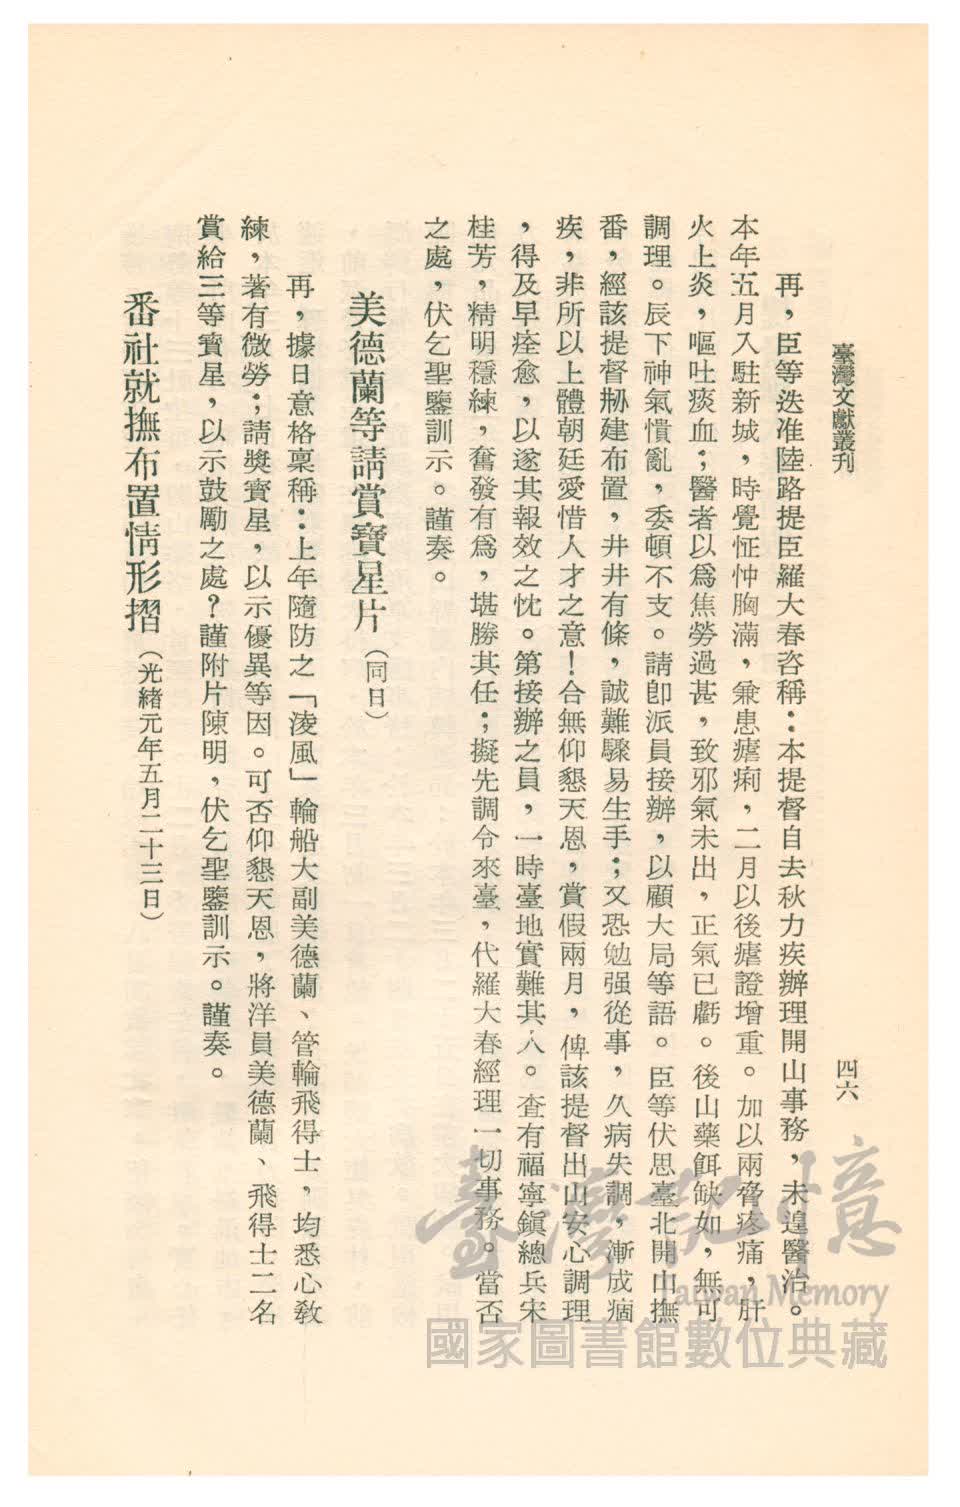 臺灣文獻叢刊
四六
再，臣等迭准陸路提臣羅大春咨稱：本提督自去秋力疾辦理開山事務，未遑醫治。
本年五月入駐新城，時覺怔忡胸滿，兼患瘧痢，二月以後瘧證增重。加以兩脅疼痛，肝
火上炎，嘔吐痰血；醫者以爲焦勞過甚，致邪氣未出，正氣已虧。後山藥餌缺如，無可
調理。辰下神氣憒亂，委頓不支。請卽派員接辦，以顧大局等語。臣等伏思臺北開山撫
番，經該提督刱建布置，井井有條，誠難驟易生手；又恐勉强從事，久病失調，漸成痼
疾，非所以上體朝廷愛惜人才之意！合無仰懇天恩，賞假兩月，俾該提督出山安心調理
，得及早痊愈，以遂其報效之忱。第接辦之員，一時臺地實難其人。查有福寧鎭總兵宋
桂芳，精明穩練，奮發有爲，堪勝其任；擬先調令來臺，代羅大春經理一切事務。當否
之處，伏乞聖鑒訓示。謹奏。
美德蘭等請賞寶星片（同日）
再，據日意格稟稱：上年隨防之「淩風」輪船大副美德蘭、管輪飛得士，均悉心敎
練，著有微勞；請獎寶星，以示優異等因。可否仰懇天恩，將洋員美德蘭、飛得士二名
賞給三等寶星，以示鼓勵之處？謹附片陳明，伏乞聖鑒訓示。謹奏。
番社就撫布置情形摺（光緒元年五月二十三日）
臺灣記憶
Taiwan Memory
國家圖書館數位典藏